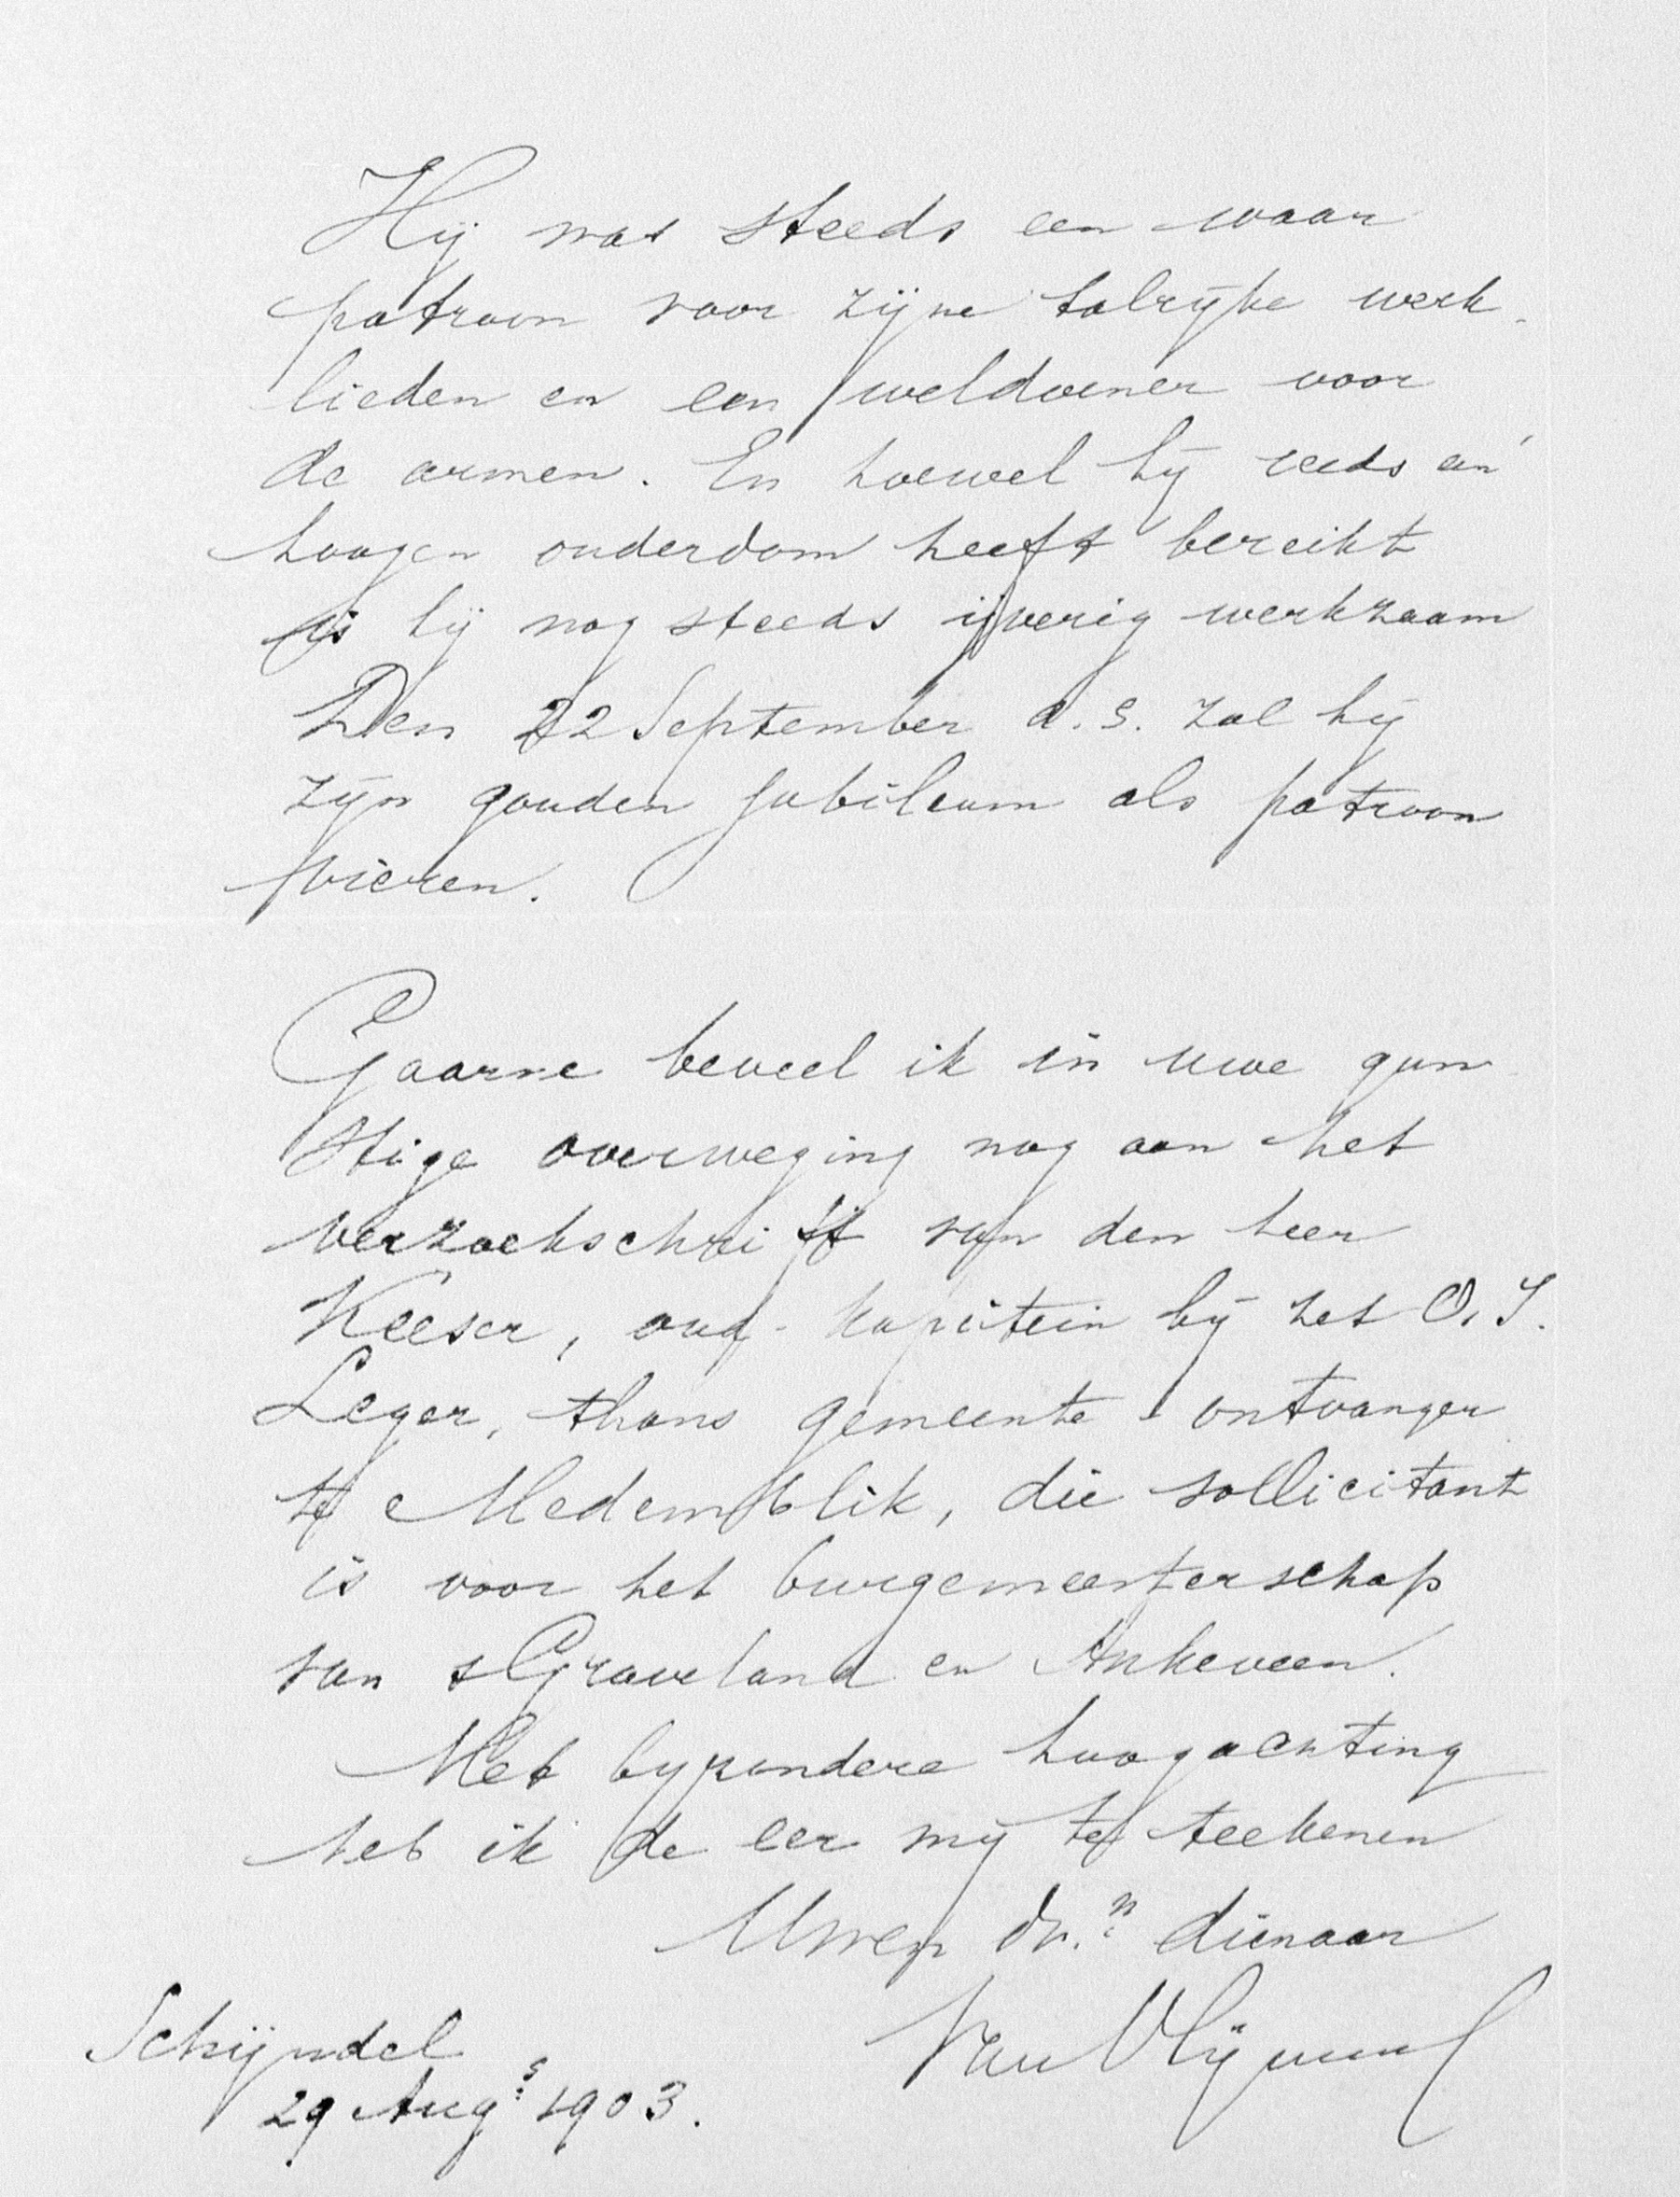 Hij was steeds een waar
patroon voor zijne talrijke werk-
lieden en een weldoener voor
de armen. En hoewel hij reeds een
hoogen ouderdom heeft bereikt
is hij nog steeds ijverig werkzaam
Den 22 September a.s. zal hij
zijn gouden jubileum als patroon
vieren.
Gaarne beveel ik in uwe gun
stige overweging nog aan het
verzoekschrift van den heer
Keeser, oud-kapitein bij het O.I.
Leger, thans gemeente-ontvanger
te Medemblik, die sollicitant
is voor het burgemeesterschap
van sGraveland en Ankeveen.
Met byzondere hoogachting
heb ik de eer mij te teekenen
Uwen dr.n dienaar
Schijndel Van Vlijmen
29 Aug.s 1903.